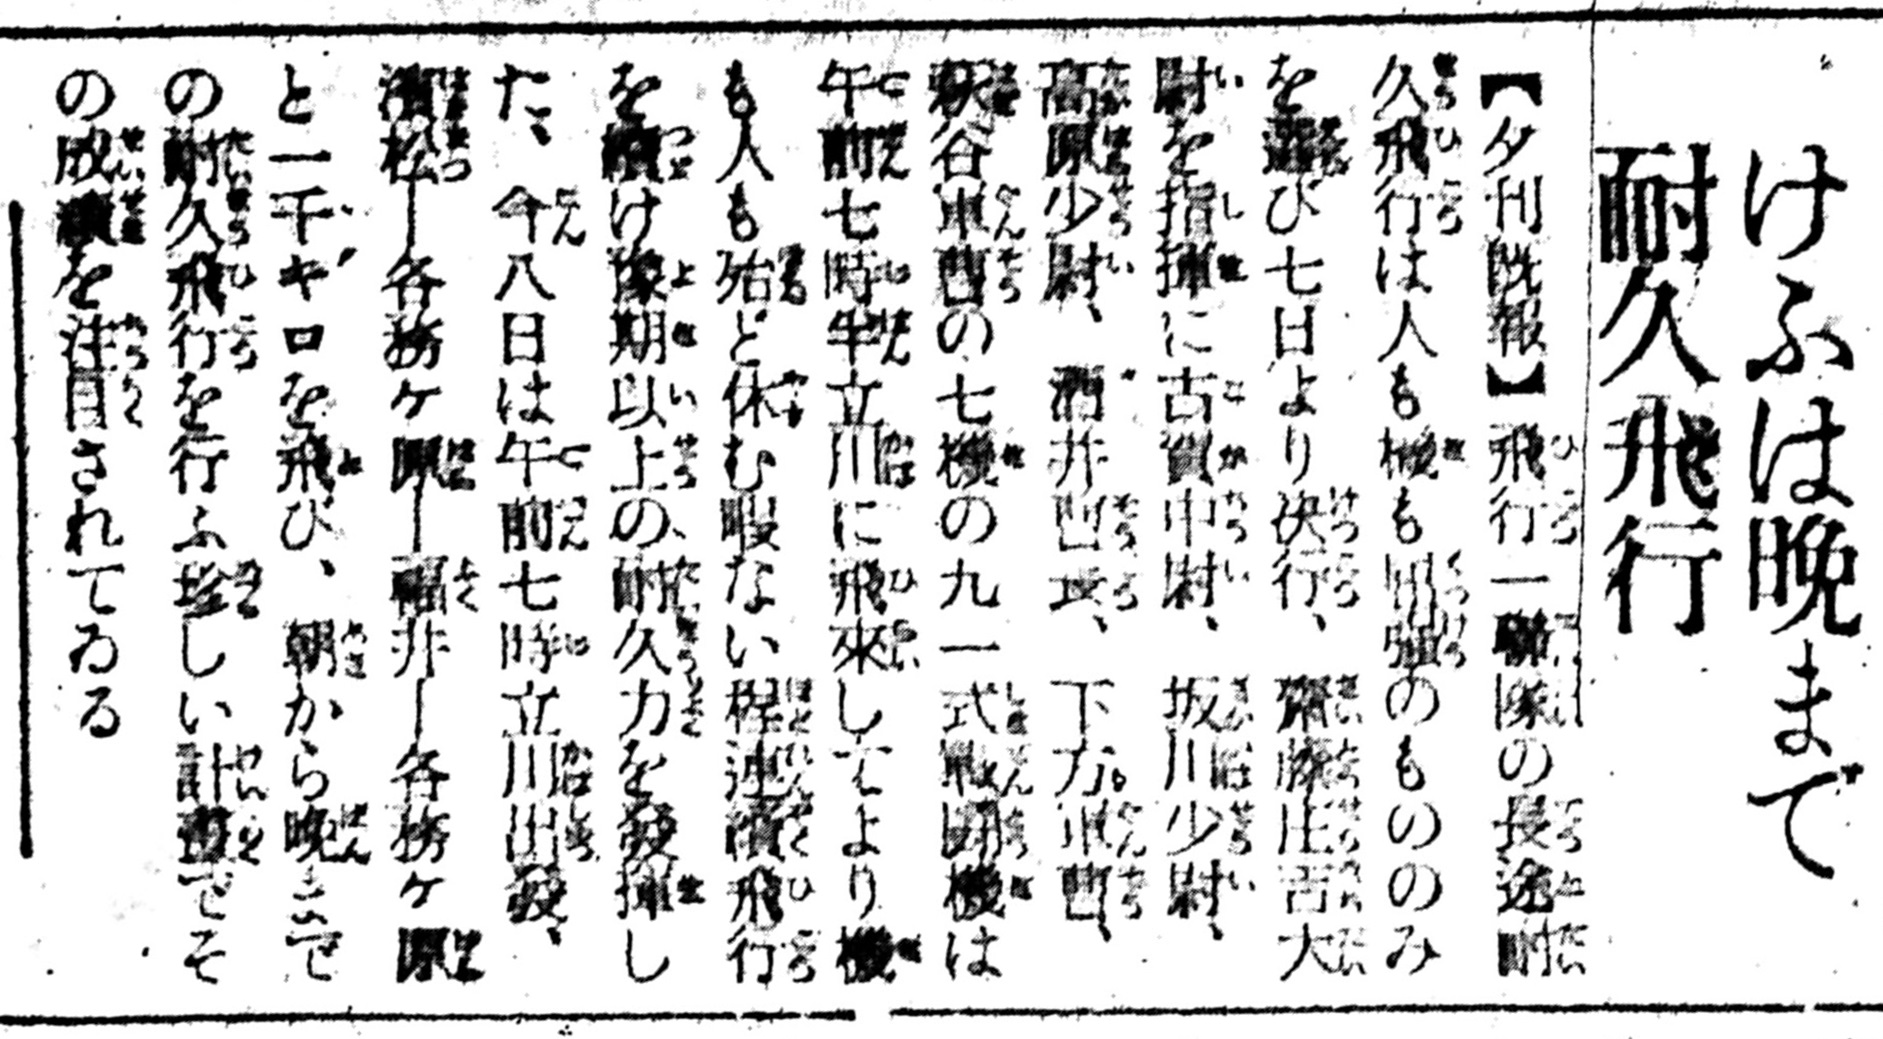 けふは晩まで
耐久飛行
【夕刊既報】飛行一聯隊の長途耐
久飛行は人も機も屈強のもののみ
を選び七日より決行、齋藤庄吉大
尉を指揮に古賀中尉、坂川少尉、
高原少尉、酒井曹長、下方軍曹、
谷軍曹の七機の九一式戦闘機は
午前七時半立川に飛來してより機
も人も殆ど休む暇ない程連續飛行
を續け豫期以上の耐久力を發揮し
た、今八日は午前七時立川出發、
濱松―各務ケ原―福井―各務ケ原
と一千キロを飛び、朝から晩まで
の耐久飛行を行ふ珍しい計畫でそ
の成績を注目されてゐる